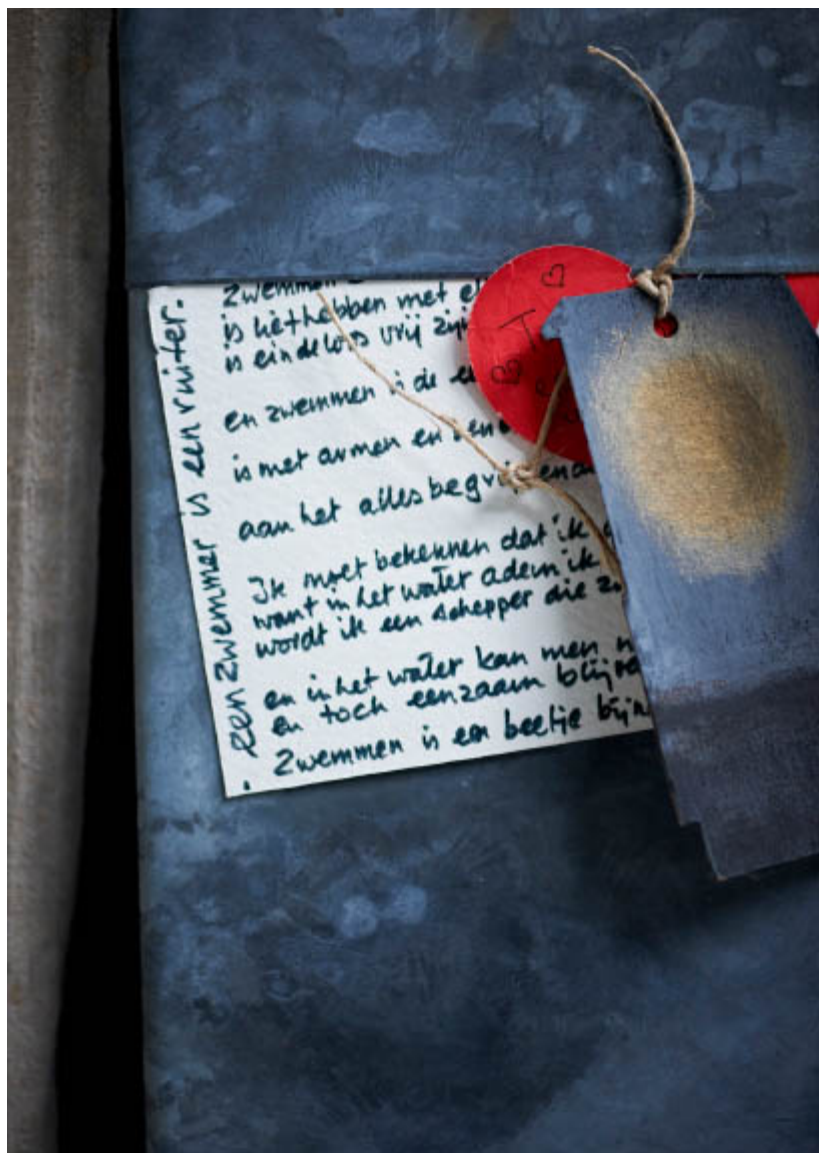 een zwemmer is een ruiter.
Zwemmen
is liefhebben met
is eindeloos vrij
en zwemmen is de
is met armen en
aan het
Ik moet bekennen dat ik
want in het water adem ik
wordt ik een schepper die
en in het water kan men
en toch eenzaam
Zwemmen is een beetje